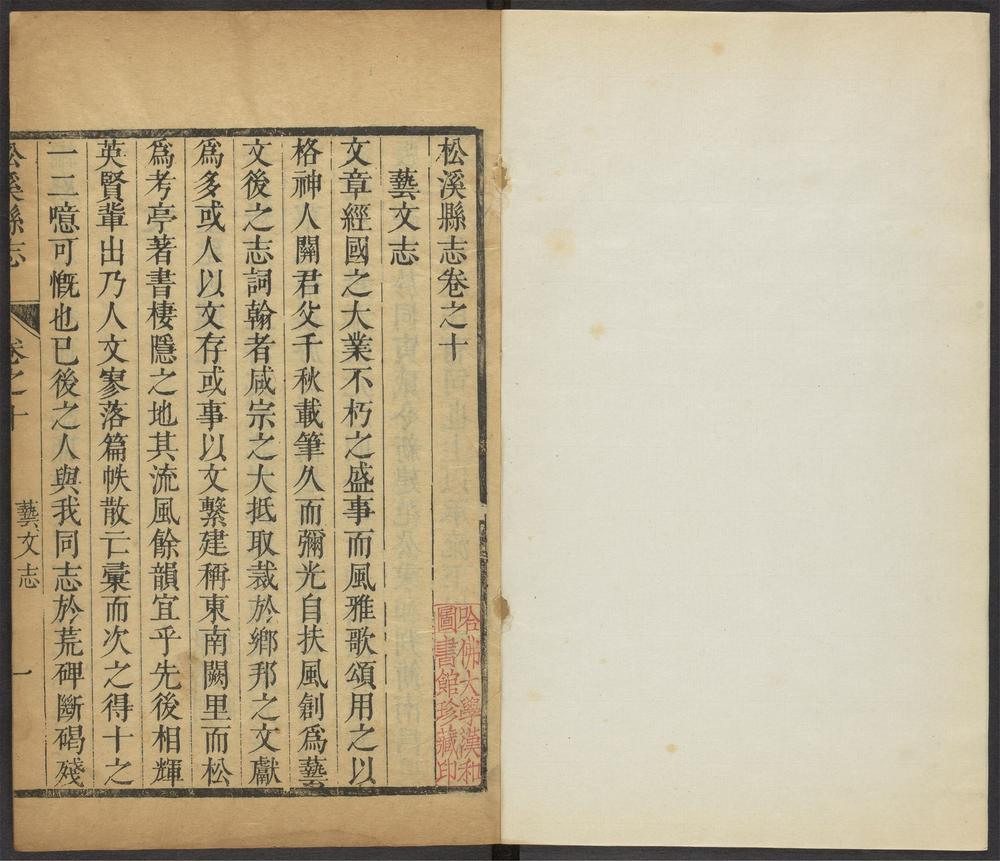 松溪縣志卷之十
藝文志
文章經國之大業不朽之盛事而風雅歌頌用之以
格神人關君父千秋載筆久而彌光自扶風創爲藝
文後之志詞翰者咸宗之大抵取裁於鄉邦之文獻
爲多或人以文存或事以文繫建稱東南闕里而松
爲考亭著書棲隱之地其流風餘韻宜乎先後相輝
英賢輩出乃人文寥落篇帙散亡彙而次之得十之
一二噫可慨也已後之人與我同志於荒碑斷碣殘
松溪縣志
卷之十
藝文志
一
哈佛大學漢和
圖書館珍藏印